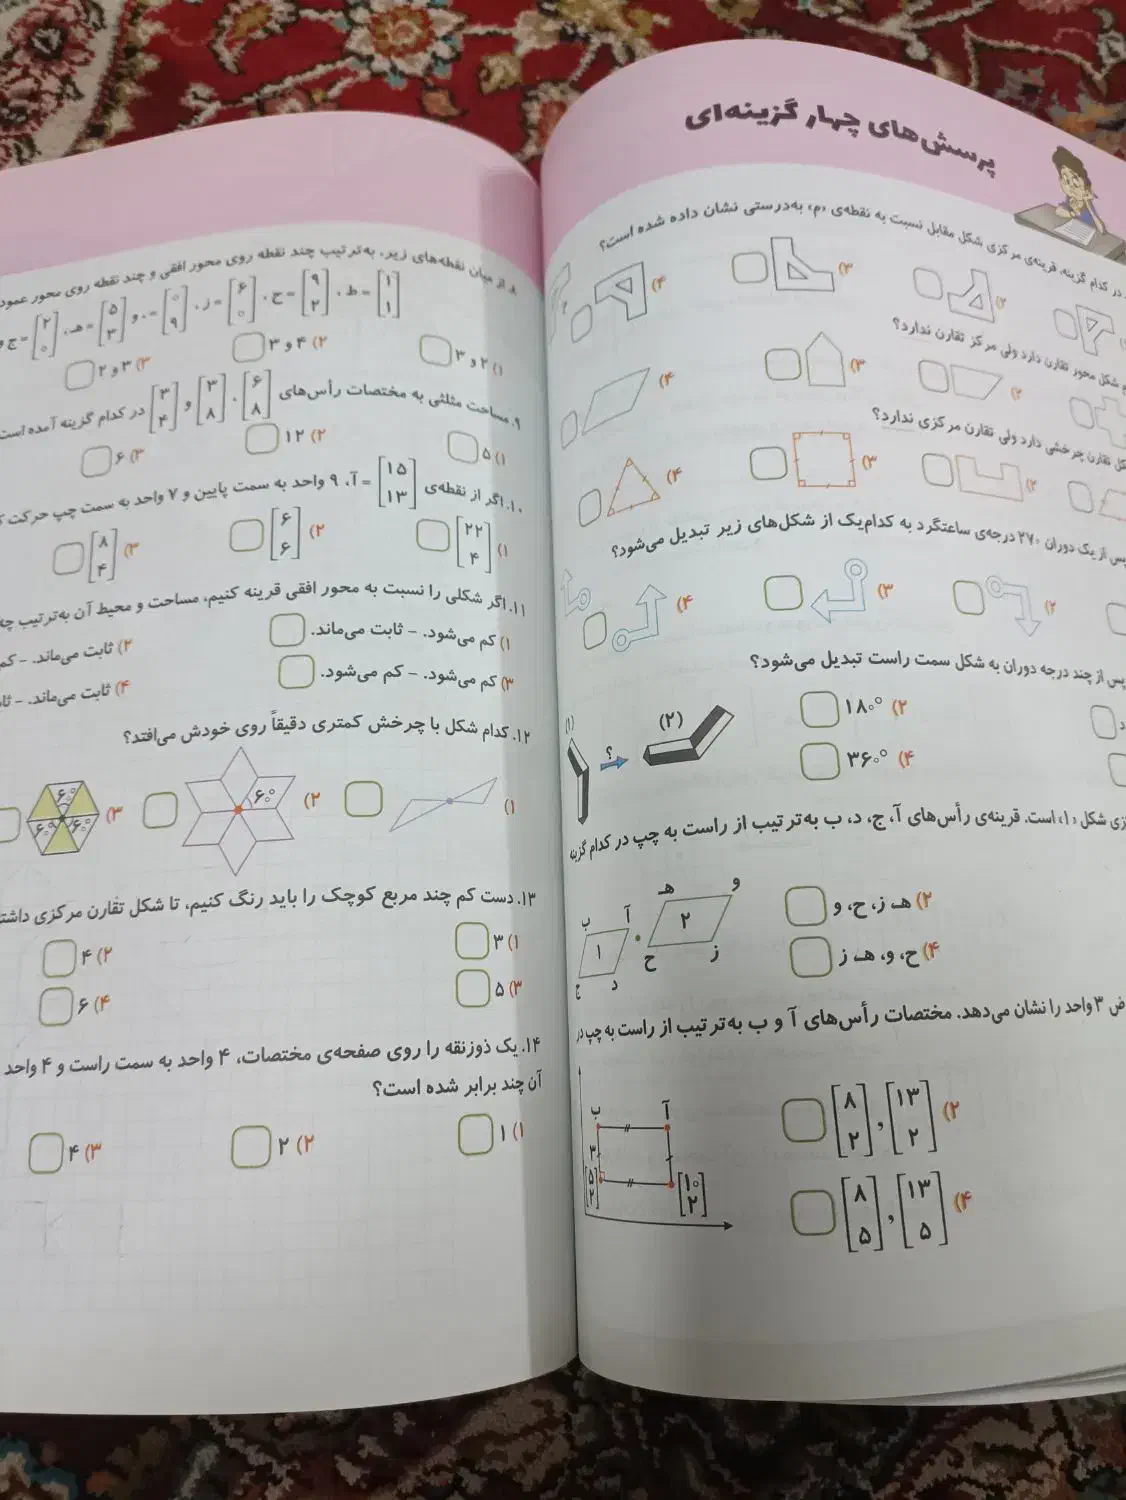 پرسش‌های چهار گزینه‌ای
در کدام گزینه، قرینه‌ی مرکزی شکل مقابل نسبت به نقطه‌ی «م» به‌درستی نشان داده شده است؟
۲)
۳)
۴)
شکل محور تقارن دارد ولی مرکز تقارن ندارد؟
۲)
۳)
۴)
تقارن چرخشی دارد ولی تقارن مرکزی ندارد؟
۲)
۳)
۴)
پس از یک دوران ۲۷۰ درجه‌ی ساعتگرد به کدام‌یک از شکل‌های زیر تبدیل می‌شود؟
۲)
۳)
۴)
پس از چند درجه دوران به شکل سمت راست تبدیل می‌شود؟
۲) ۱۸۰°
۴) ۳۶۰°
(۱)
؟
(۲)
شکل «۱» است. قرینه‌ی رأس‌های آ، ج، د، ب به‌ترتیب از راست به چپ در کدام گزینه
۲) هـ، ز، ح، و
۴) ح، و، هـ، ز
و
هـ
۲
ز
ح
آ
ب
۱
د
ج
۳ واحد را نشان می‌دهد. مختصات رأس‌های آ و ب به‌ترتیب از راست به چپ در
۲) [۱۳ ۲] , [۸ ۲]
۴) [۱۳ ۵] , [۸ ۵]
آ
ب
۳
[۵ ۲]
[۱۰ ۲]
۸. از میان نقطه‌های زیر، به‌ترتیب چند نقطه روی محور افقی و چند نقطه روی محور
[۱ ۱] = ط ، [۹ ۲] = ح ، [۶ ۰] = ز ، [۰ ۹] = و ، [۵ ۳] = هـ ، [۲ ۰] = ج
۱) ۲ و ۳
۲) ۴ و ۳
۳) ۳ و ۲
۹. مساحت مثلثی به مختصات رأس‌های [۶ ۸] ، [۳ ۸] و [۳ ۴] در کدام گزینه آمده است
۱) ۵
۲) ۱۲
۳) ۶
۱۰. اگر از نقطه‌ی [۱۵ ۱۳] = آ، ۹ واحد به سمت پایین و ۷ واحد به سمت چپ حرکت
۱) [۲۲ ۴]
۲) [۶ ۶]
۳) [۸ ۴]
۱۱. اگر شکلی را نسبت به محور افقی قرینه کنیم، مساحت و محیط آن به‌ترتیب
۱) کم می‌شود. – ثابت می‌ماند.
۲) ثابت می‌ماند. – کم
۳) کم می‌شود. – کم می‌شود.
۴) ثابت می‌ماند. –
۱۲. کدام شکل با چرخش کمتری دقیقاً روی خودش می‌افتد؟
۱)
۲)
۶۰°
۳)
۶۰°
۶۰°
۶۰°
۱۳. دست کم چند مربع کوچک را باید رنگ کنیم، تا شکل تقارن مرکزی
۱) ۳
۲) ۴
۳) ۵
۴) ۶
۱۴. یک ذوزنقه را روی صفحه‌ی مختصات، ۴ واحد به سمت راست و ۴ واحد
آن چند برابر شده است؟
۱) ۱
۲) ۲
۳) ۴